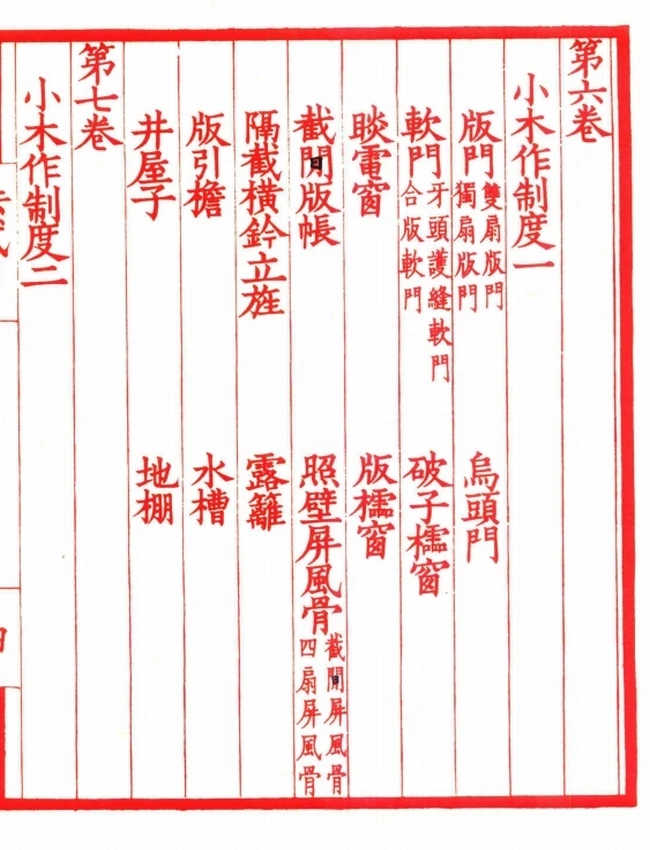 第六卷
小木作制度一
版門 雙扇版門 獨扇版門 烏頭門
軟門 牙頭護縫軟門 合版軟門 破子檽窗
睒電窗 版檽窗
截間版帳 照壁屏風骨 截間屏風骨 四扇屏風骨
隔截橫鈐立旌 露籬
版引檐 水槽
井屋子 地棚
第七卷
小木作制度二